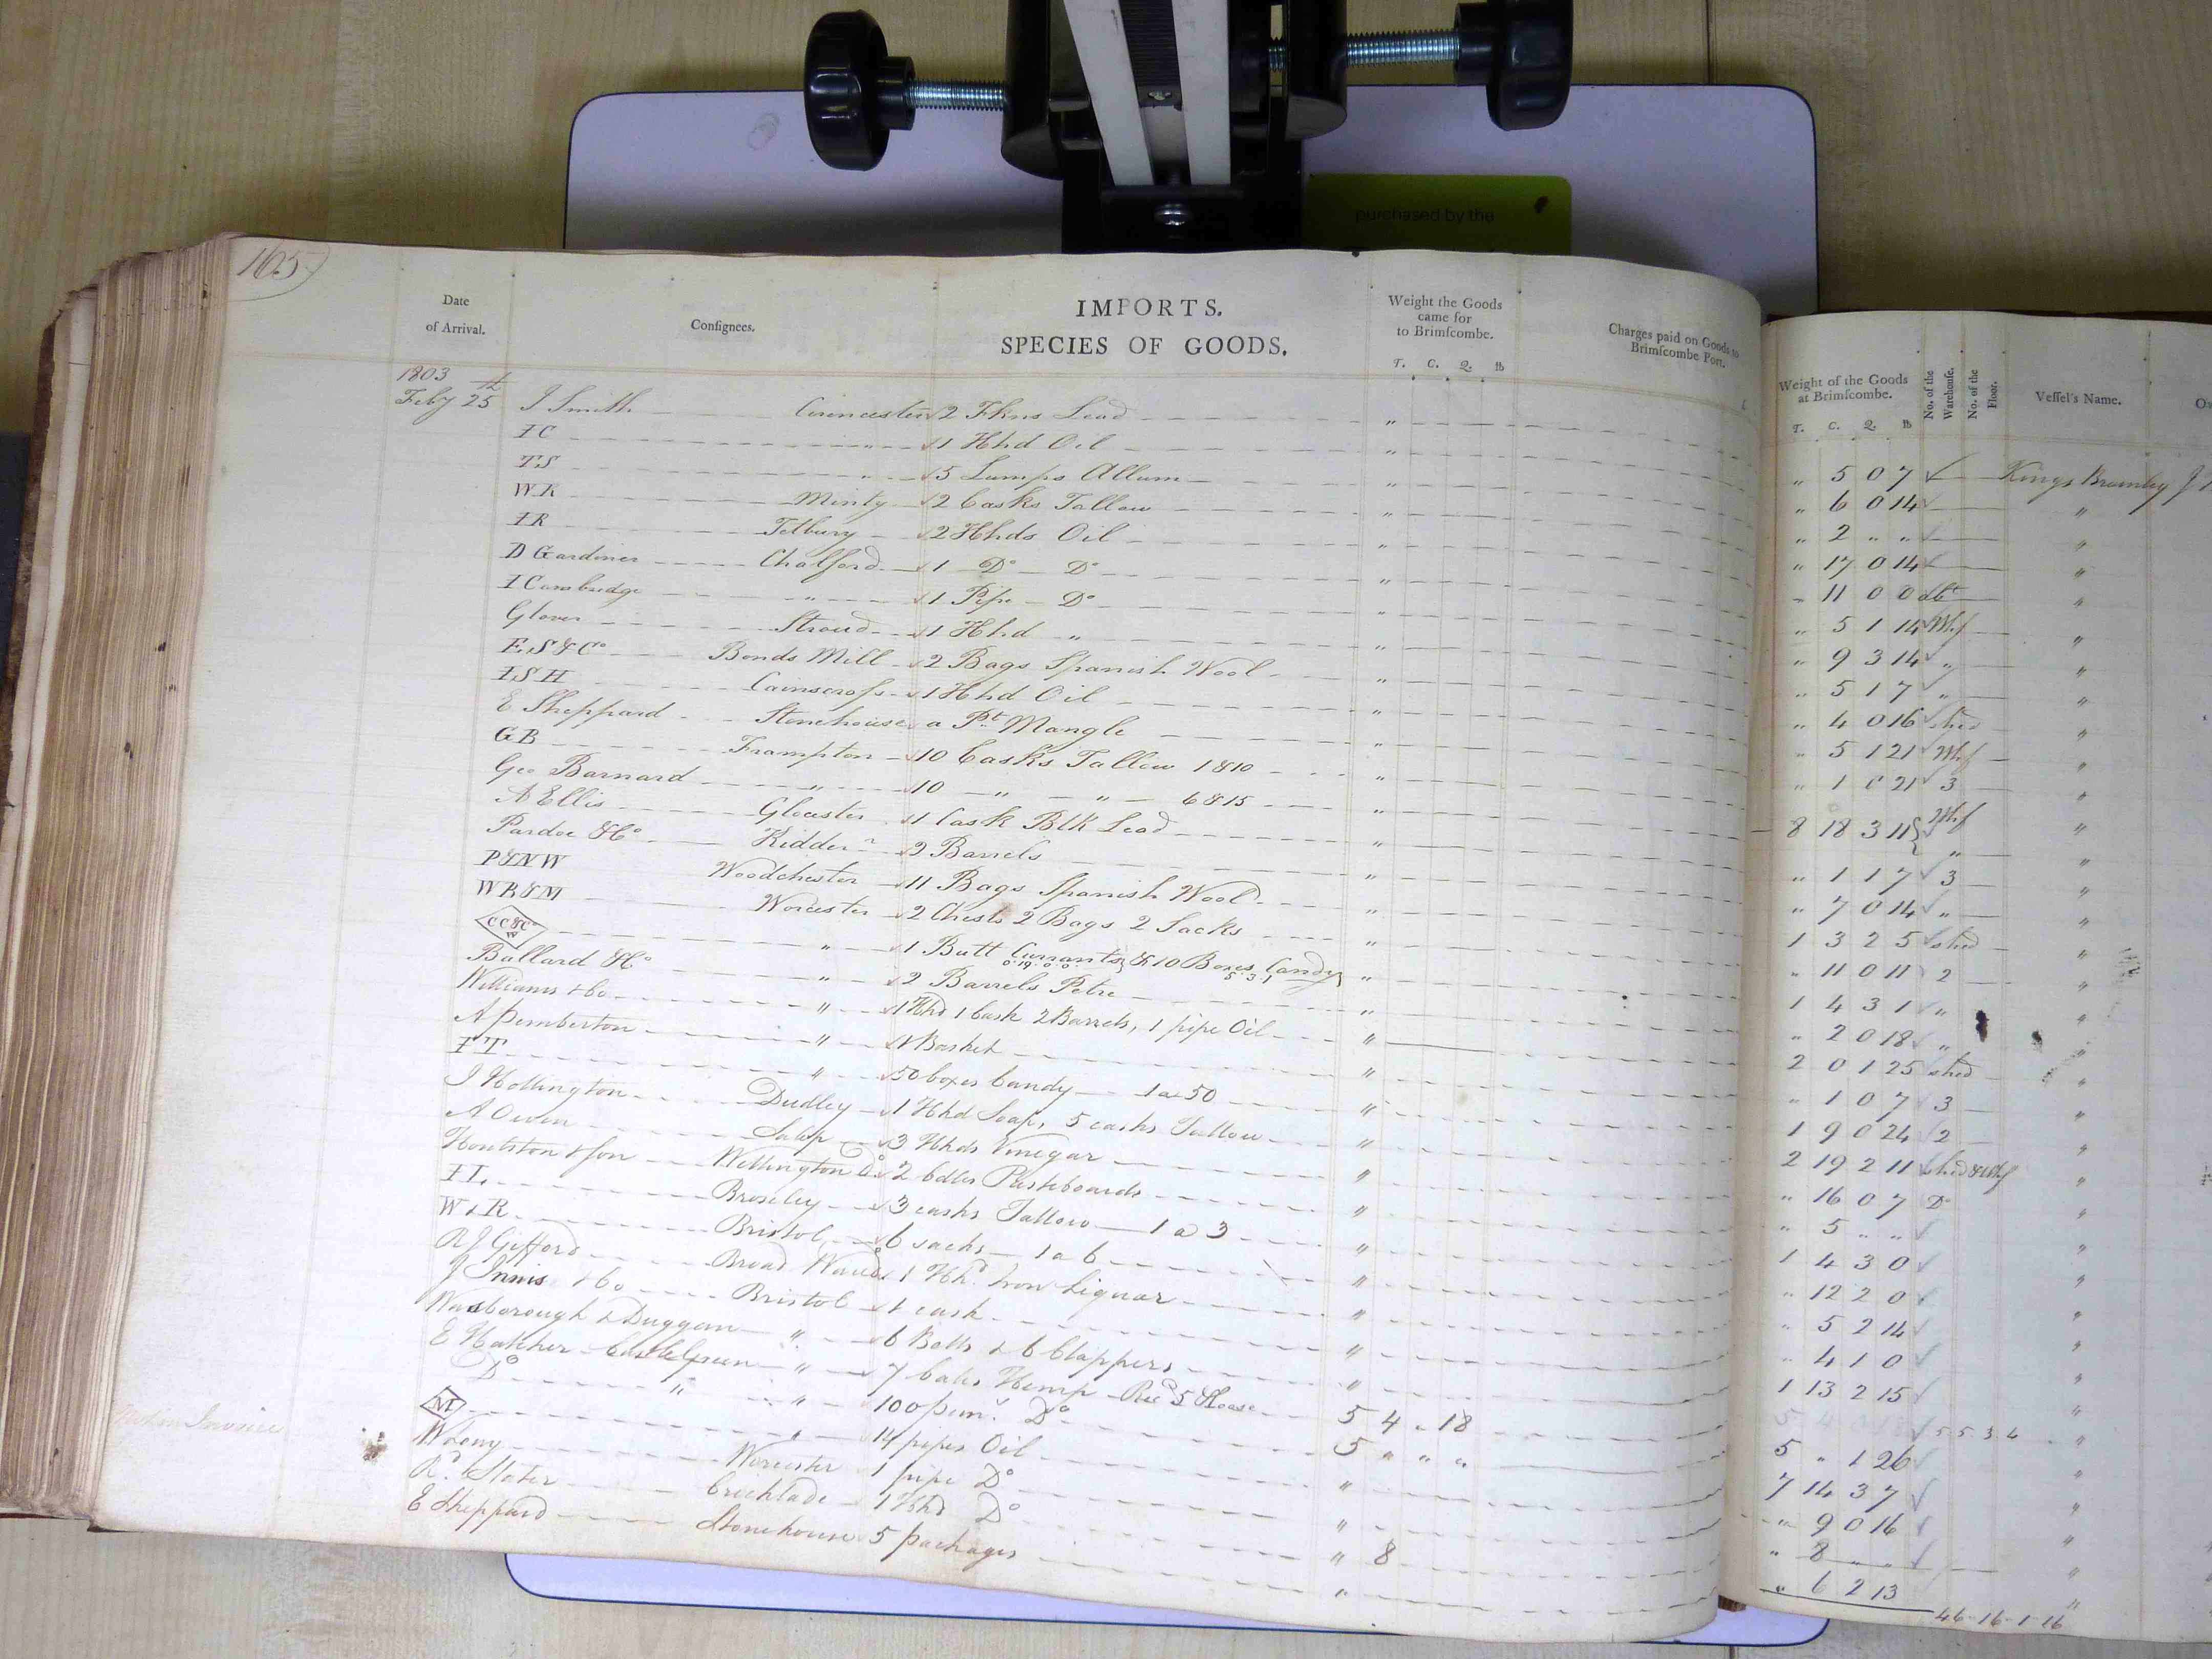 purchased by the
165
Date of Arrival.
Consignees.
IMPORTS.
SPECIES OF GOODS.
Weight the Goods came for to Brimscombe.
T. C. Q. lb
Charges paid on Goods to Brimscombe Port.
Weight of the Goods at Brimscombe.
T. C. Q. lb
No. of the Warehouse.
No. of the Floor.
Vessel's Name.
1803
Feby 25th J Smith Cirencester 2 Fkns Lead " " 5 0 7 Kings Bromley J
IC " 1 Hhd Oil " " 6 0 14 "
TS " 5 Lumps Allum " " 2 " " "
WK Minty 2 Casks Tallow " " 17 0 14 "
IR Tetbury 2 Hhds Oil " " 11 0 0 "
D Gardiner Chalford 1 Do Do " " 5 1 14 Whf "
I Cambridge " 1 Pipe Do " " 9 3 14 " "
Glover Stroud 1 Hhd " " " 5 1 7 " "
ES&Co Bonds Mill 2 Bags Spanish Wool " " 4 0 16 shed "
ISH Cainscross 1 Hhd Oil " " 5 1 21 Whf "
E Sheppard Stonehouse a Pt Mangle " " 1 0 21 3 "
GB Frampton 10 Casks Tallow 1810 " 8 18 3 11 Whf "
Geo Barnard " 10 " " 6815 " " "
A Ellis Glocester 1 Cask Blk Lead " " 1 1 7 3 "
Pardoe &Co Kidderr 2 Barrels " " 7 0 14 " "
P&NW Woodchester 11 Bags Spanish Wool " 1 3 2 5 shed "
WB&M Worcester 2 Chests 2 Bags 2 Sacks " " 11 0 11 2 "
CC&Co W " 1 Butt Currants & 10 Boxes Candy " 1 4 3 1 " "
0.19.0.0 5.3.1
Ballard &Co " 2 Barrels Petre " " 2 0 18 " "
Williams & Co " 1 Hhd 1 Cask 2 Barrels, 1 pipe Oil " 2 0 1 25 shed "
A Pemberton " 1 Basket " " 1 0 7 3 "
IT " 50 boxes Candy 1 a 50 " 1 9 0 24 2 "
J Hollington Dudley 1 Hhd Soap, 5 casks Tallow " 2 19 2 11 shed & Whf "
A Owen Salop 3 Hhds Vinegar " " 16 0 7 Do "
Houlston & Son Wellington Do 2 bdles Pasteboards " " 5 " " "
IL Broseley 3 casks Tallow 1 a 3 " 1 4 3 0 "
W&R Bristol 6 sacks 1 a 6 " " 12 2 0 "
RJ Gifford Broad 1 Hhd Iron Liquor " " 5 2 14 "
J Innis & Co Bristol 1 cask " " 4 1 0 "
Wasborough & Duggan " 6 Bells & 6 Clappers " 1 13 2 15 "
E Hatcher Castle Green " 7 bales Hemp 5 4 " 18 5 5 3 6 "
Do " " 100 Do 5 " " " 5 " 1 26 "
M " 14 pipes Oil " 7 14 3 7 "
Worcester 1 pipe Do " " 9 0 16 "
Rd Slater Crichlade 1 Hhd Do " 8 " 8 " " "
E Sheppard Stonehouse 5 packages " " 6 2 13 "
46-16-1-16